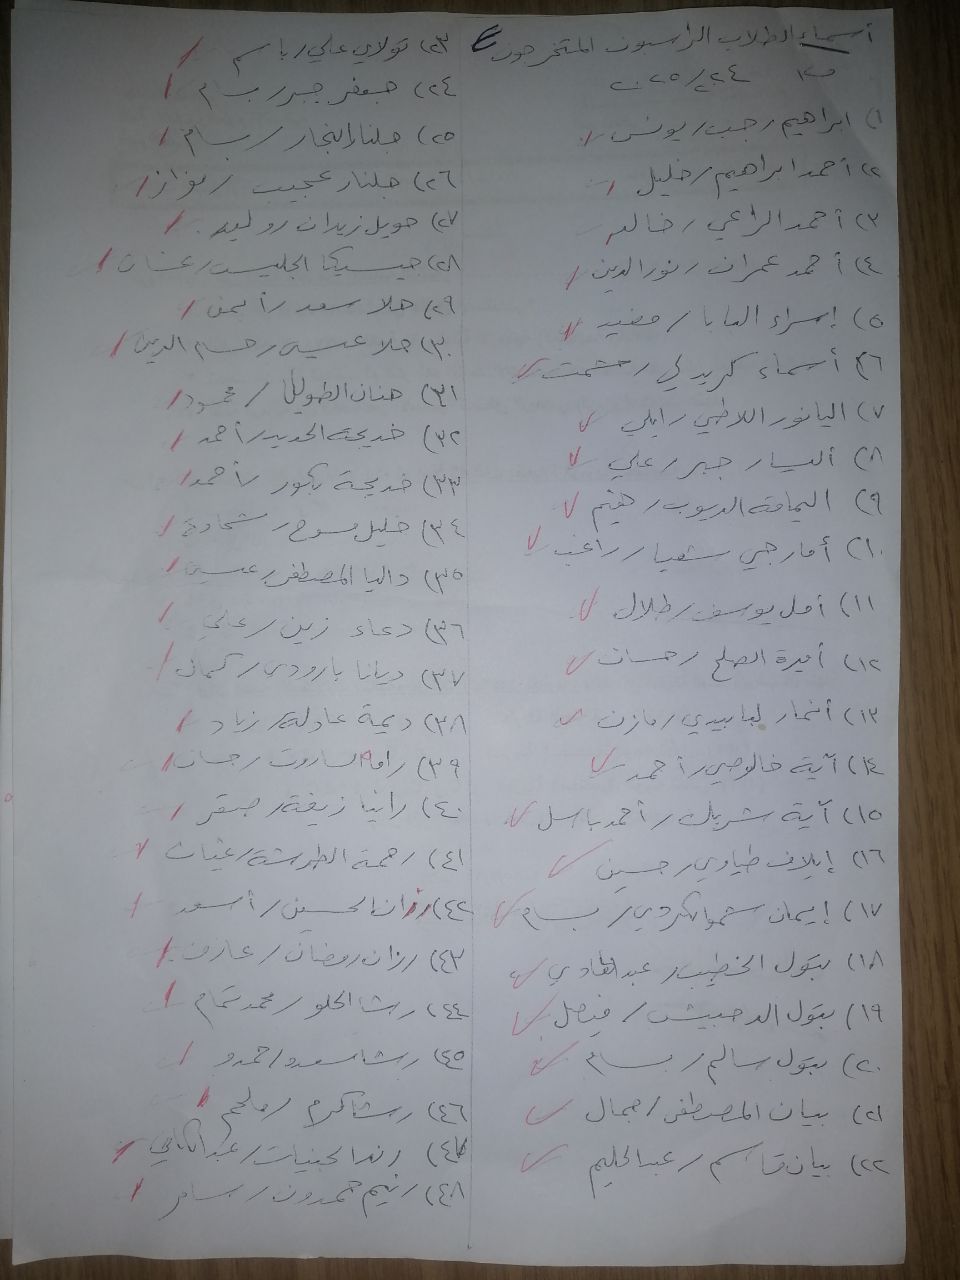 أسماء الطلاب الراسبون المتخرجون
٢٠٢٥/٢٤
١) ابراهيم رجب / يونس
٢) أحمد ابراهيم / خليل
٣) أحمد الراعي / خالد
٤) أحمد عمران / نور الدين
٥) إسراء البابا / مفيد
٦) أسماء كريدلي / حشمت
٧) اليانور اللاطي / ايلي
٨) أليسار جبر / علي
٩) اليمامة الديوب / هيثم
١٠) شعيا / راغب
١١) أمل يوسف / طلال
١٢) أميرة الصلح / حسان
١٣) أنمار لبابيدي / مازن
١٤) آية خالوصي / أحمد
١٥) آية شربك / أحمد باسل
١٦) إيلاف طياوي / حسين
١٧) إيمان / بسام
١٨) بتول الخطيب / عبد الهادي
١٩) بتول الدحبيش / فيصل
٢٠) بتول سالم / بسام
٢١) بيان المصطفى / جمال
٢٢) بيان قاسم / عبد الحليم
٢٣) تولاي علي / باسم
٢٤) جعفر جبر / بسام
٢٥) جلنار النجار / بسام
٢٦) جلنار عجيب / فواز
٢٧) جويل زيدان / وليد
٢٨) جيسيكا الجليس / غسان
٢٩) حلا سعد / أيمن
٣٠) حلا عيسى / حسام الدين
٣١) حنان الطويل / محمود
٣٢) خديجة الحديد / أحمد
٣٣) خديجة بكور / أحمد
٣٤) خليل مسوح / شحادة
٣٥) داليا المصطفى / عيسى
٣٦) دعاء زين / علي
٣٧) ديانا بارودي / كمال
٣٨) ديمة عادلة / زياد
٣٩) راما الساروت / حسان
٤٠) رانيا زيفة / صقر
٤١) رحمة الطرشة / غياث
٤٢) رزان الحسين / أسعد
٤٣) رزان رمضان / عارف
٤٤) رشا الحلو / محمد تمام
٤٥) رشا سعدو / حمدو
٤٦) رشا كرم / ملحم
٤٧) رندا الجنيات / عبد الكافي
٤٨) رنيم حمدون / سامر